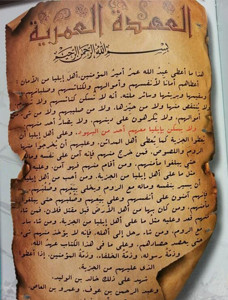 العهدة العمرية
بسم الله الرحمن الرحيم
هذا ما أعطى عبد الله عمر أمير المؤمنين، أهل إيليا من الأمان:
أعطاهم أماناً لأنفسهم وأموالهم ولكنائسهم وصلبانهم
وسقيمها وبريئها وسائر ملتها، أنه لا تسكن كنائسهم ولا تهدم
ولا ينتقص منها ولا من حيزها، ولا من صليبهم، ولا من شيء من
أموالهم، ولا يكرهون على دينهم، ولا يضار أحد منهم،
ولا يسكن بإيليا معهم أحد من اليهود، وعلى أهل إيليا أن
يعطوا الجزية كما يعطي أهل المدائن، وعليهم أن يخرجوا منها
الروم واللصوص، فمن خرج منهم فإنه آمن على نفسه وماله
حتى يبلغوا مأمنهم، ومن أقام منهم فهو آمن، وعليه
مثل ما على أهل إيليا من الجزية، ومن أحب من أهل إيليا
أن يسير بنفسه وماله مع الروم ويخلي بيعهم وصلبهم
فإنهم آمنون على أنفسهم
حتى يبلغوا
مأمنهم، ومن كان بها من أهل الأرض قبل مقتل فلان، فمن شاء
منهم قعد وعليه مثل ما على أهل إيليا من الجزية، ومن شاء سار
مع الروم، ومن شاء رجل إلى أهله، فإنه لا يؤخذ منهم شيء
حتى يحصد حصادهم، وعلى ما في هذا الكتاب عهد الله،
وذمة رسوله، وذمة الخلفاء، وذمة المؤمنين، إذا أعطوا
الذي عليهم من الجزية.
شهد على ذلك خالد بن الوليد،
وعبد الرحمن بن عوف، وعمرو بن العاص،